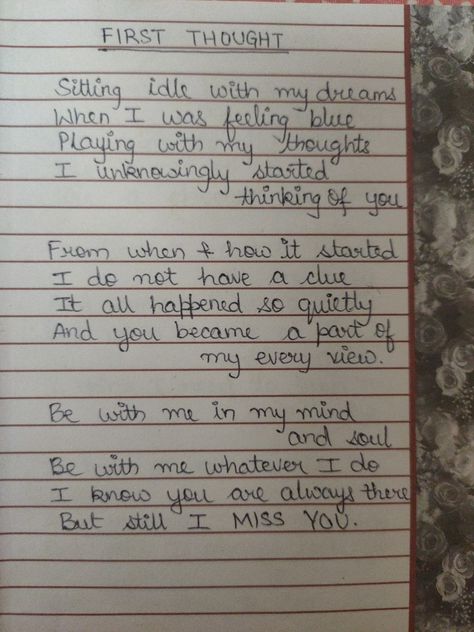 FIRST THOUGHT
Sitting idle with my dreams
When I was feeling blue
Playing with my thoughts
I unknowingly started
thinking of you
From when & how it started
I do not have a clue
It all happened so quietly
And you became a part of
my every view.
Be with me in my mind
and soul
Be with me whatever I do
I know you are always there
But still I MISS YOU.